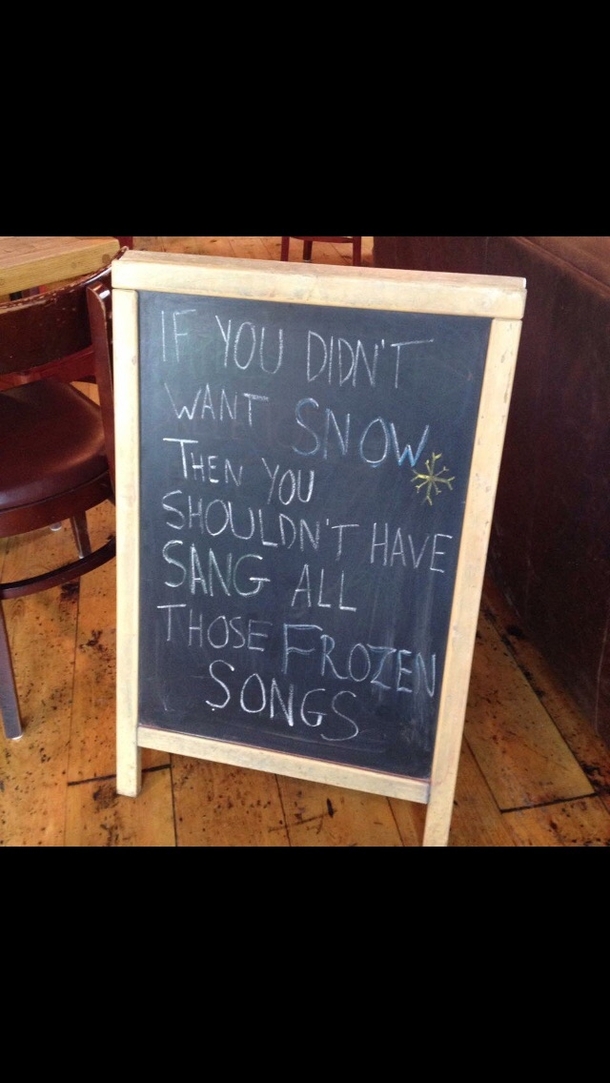 IF YOU DIDN'T
WANT SNOW
THEN YOU
SHOULDN'T HAVE
SANG ALL
THOSE FROZEN
SONGS